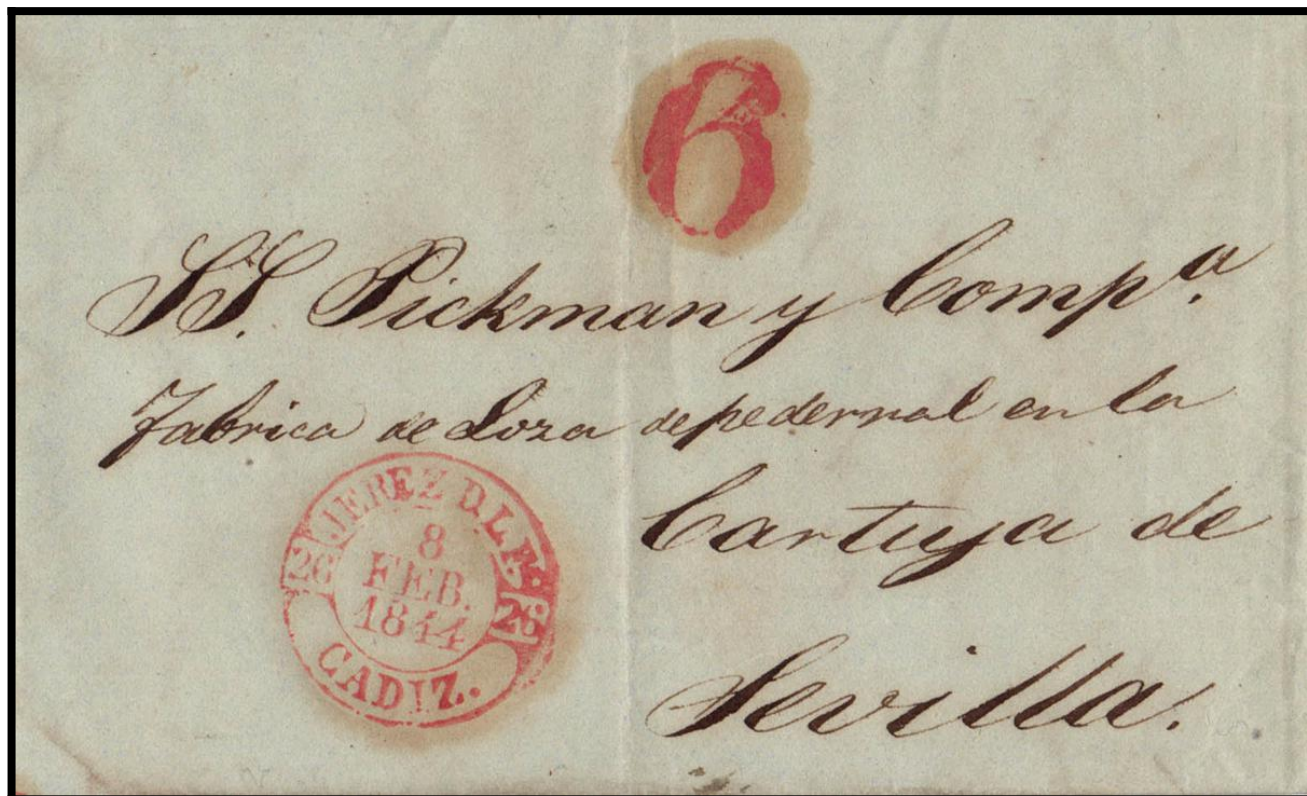 6
SS. Pickman y Compª.
Fabrica de Loza de pedernal en la
Cartuja de
Sevilla.
JEREZ D.L.F.
26 26
8
FEB.
1844
CADIZ.